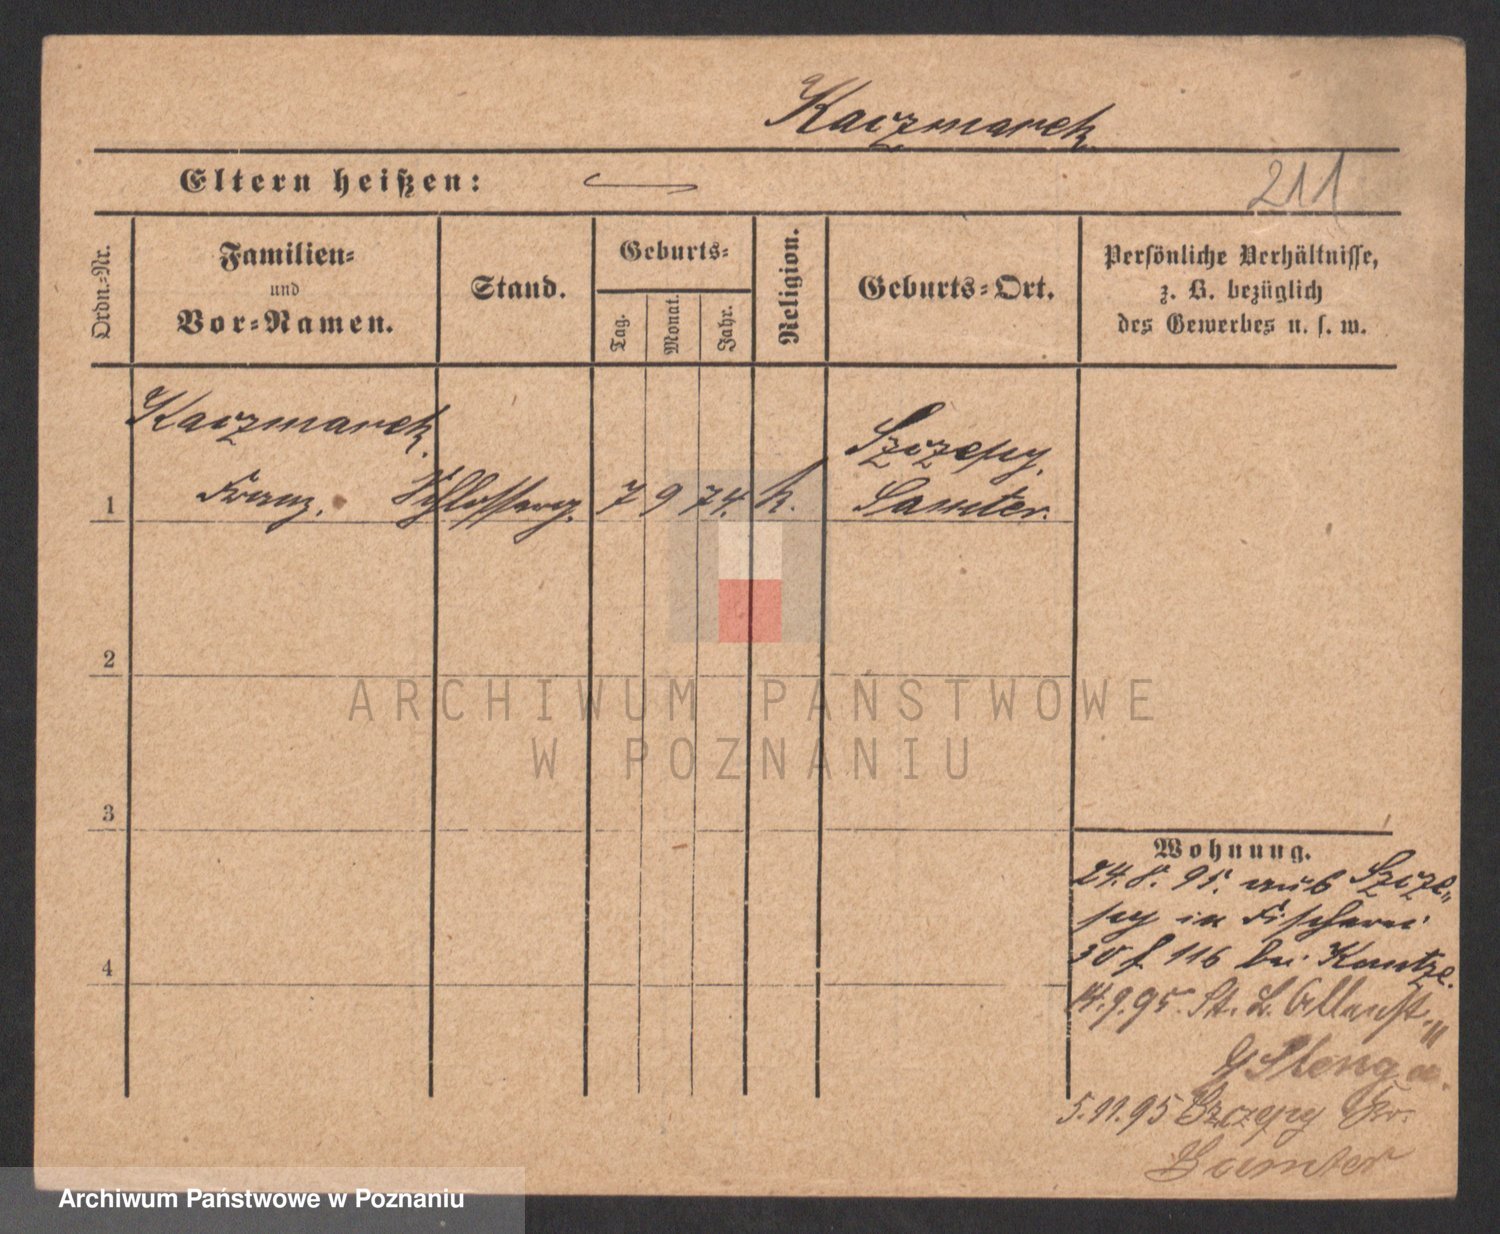 Kaczmarek
Eltern heißen:
211
Ordn.-Nr.
Familien-
und
Vor-Namen.
Stand.
Geburts-
Tag.
Monat.
Jahr.
Religion.
Geburts-Ort.
Persönliche Verhältnisse,
z. B. bezüglich
des Gewerbes u. s. w.
Kaczmarek
Szczepy,
1 Franz. Schlosserg. 7 9 74. k. Samter.
2
ARCHIWUM PAŃSTWOWE
W POZNANIU
3
Wohnung.
24.8.95. aus Szcze„
py in Fischerei
f 116 bei
4
14.9.95. St. L.
5.11.95 Szczepy Kr.
Samter
Archiwum Państwowe w Poznaniu